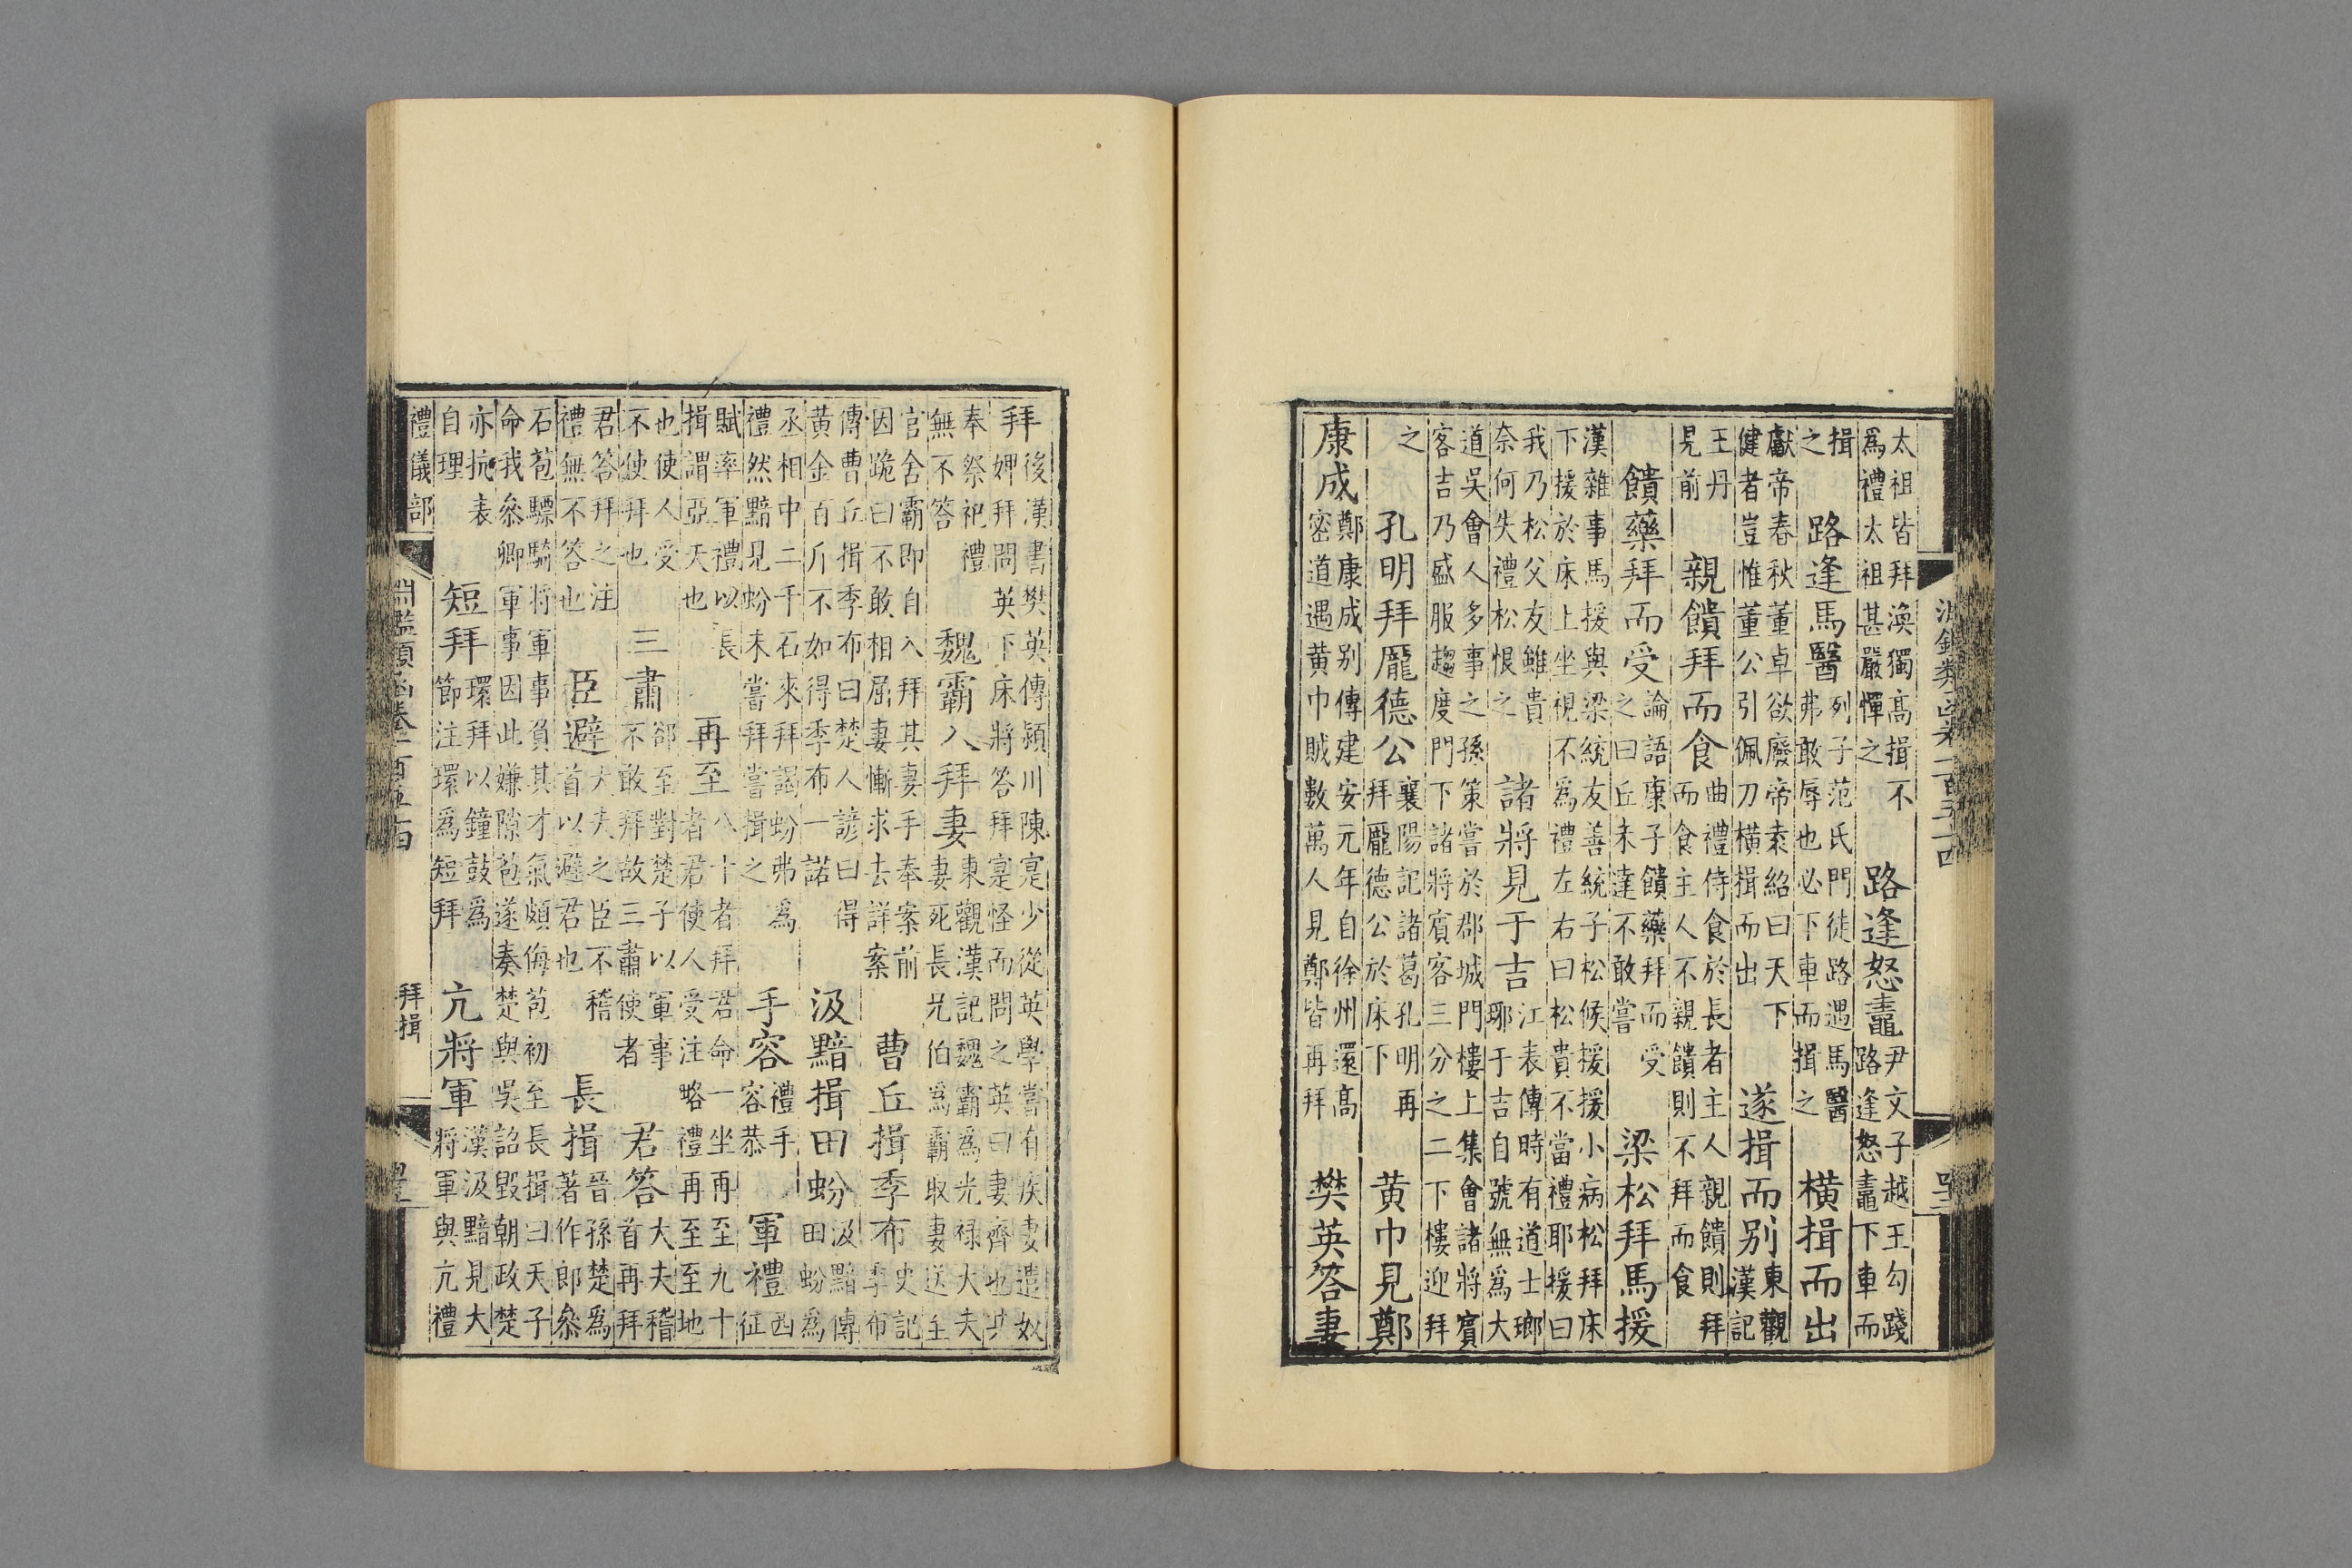 淵鑑類函卷二百五十四
太祖皆拜渙獨高揖不為禮太祖甚嚴憚之 路逢怒鼃 尹文子越王勾踐路逢怒鼃下車而
揖之 路逢馬醫 列子范氏門徒路遇馬醫弗敢辱也必下車而揖之 橫揖而出
獻帝春秋董卓欲廢帝袁紹曰天下健者豈惟董公引佩刀橫揖而出 遂揖而別 東觀漢記
王丹見前 親饋拜而食 曲禮侍食於長者主人親饋則拜而食主人不親饋則不拜而食
饋藥拜而受 論語康子饋藥拜而受之曰丘未達不敢嘗 梁松拜馬援
漢雜事馬援與梁統友善統子松候援援小病松拜床下援於床上坐視不為禮左右曰松貴不當禮耶援曰
我乃松父友雖貴奈何失禮松恨之 諸將見于吉 江表傳時有道士瑯琊于吉自號無為大
道吳會人多事之孫策嘗於郡城門樓上集會諸將賓客吉乃盛服趨度門下諸將賓客三分之二下樓迎拜
之 孔明拜龎德公 襄陽記諸葛孔明再拜龎德公於床下 黃巾見鄭
康成 鄭康成別傳建安元年自徐州還高密道遇黃巾賊數萬人見鄭皆再拜 樊英答妻
拜 後漢書樊英傳潁川陳寔少從英學嘗有疾妻遣奴婢拜問英下床將答拜寔怪而問之英曰妻齊也共
奉祭祀禮無不答 魏霸入拜妻 東觀漢記魏霸為光祿大夫妻死長兄伯為霸取妻送至
官舍霸即自入拜其妻手奉案前因跪曰不敢相屈妻慚求去詳案 曹丘揖季布 史記季布
傳曹丘揖季布曰楚人諺曰得黃金百斤不如得季布一諾 汲黯揖田蚡 汲黯傳田蚡為
丞相中二千石來拜謁蚡弗為禮然黯見蚡未嘗拜嘗揖之 手容 禮手容恭 軍禮 西征
賦率軍禮以長揖謂亞夫也 再至 八十者拜君命一坐再至九十者君使人受注略禮再至至地
也使人受不使拜也 三肅 郤至對楚子以軍事不敢拜故三肅使者 君答 大夫稽首再拜
君答拜之注禮無不答也 臣避 大夫之臣不稽首以避君也 長揖 晉孫楚為著作郎叅
石苞驃騎將軍事負其才氣頗侮苞初至長揖曰天子命我叅卿軍事因此嫌隙苞遂奏楚與吳訕毀朝政楚
亦抗表自理 短拜 環拜以鐘鼓為節注環為短拜 亢將軍 漢汲黯見大將軍與亢禮
禮儀部 淵鑑類函卷二百五十四 拜揖